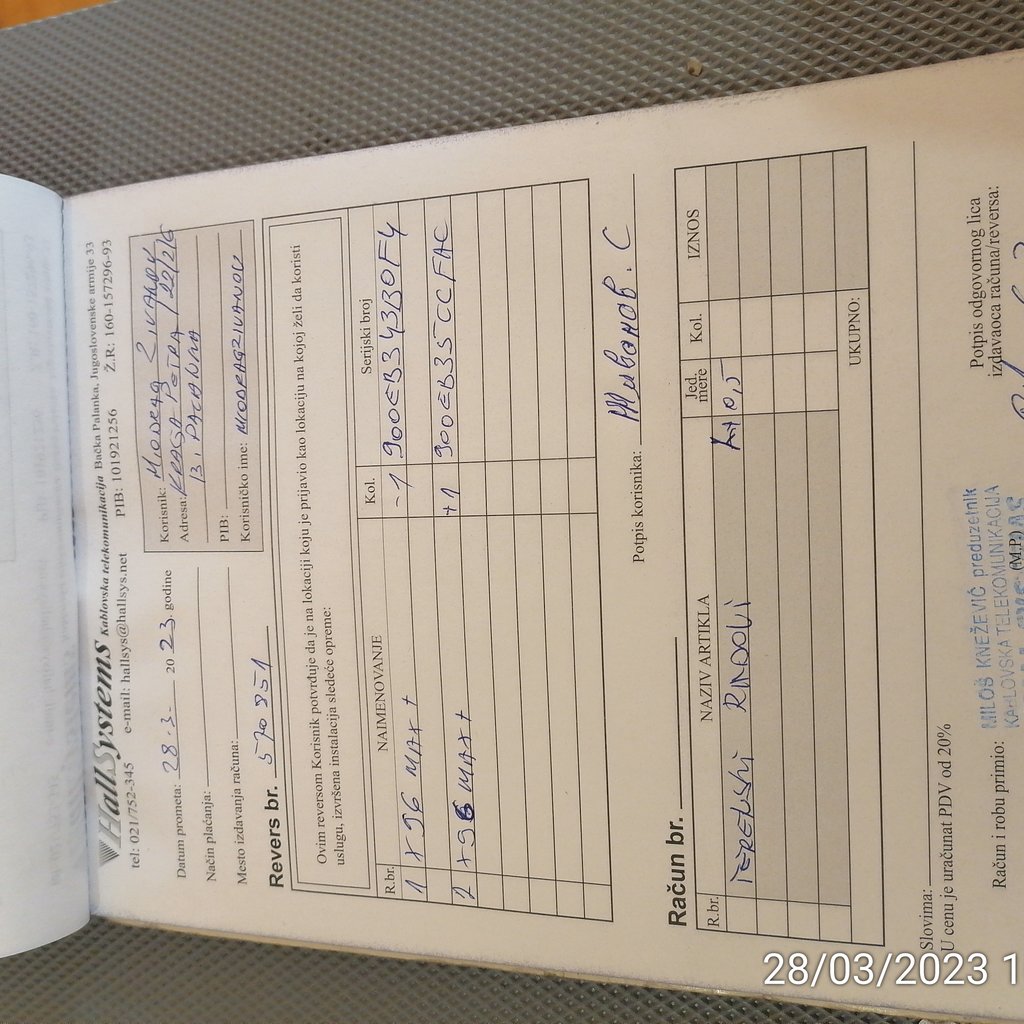 HallSystems Kablovska telekomunikacija Bačka Palanka, Jugoslovenske armije 33
tel: 021/752-345 e-mail: hallsys@hallsys.net PIB: 101921256 Ž.R: 160-157296-93
Datum prometa: 28.3. 2023 godine
Način plaćanja:
Mesto izdavanja računa:
Korisnik: MIODRAG ŽIVANOV
Adresa: KRAGA PETRA I 22/26
B. PALANKA
PIB:
Korisničko ime: MIODRAGZIVANOV
Revers br. 570851
Ovim reversom Korisnik potvrđuje da je na lokaciji koju je prijavio kao lokaciju na kojoj želi da koristi
uslugu, izvršena instalacija sledeće opreme:
R.br. NAIMENOVANJE Kol. Serijski broj
1 X96 MAX+ -1 900EB343B0F4
2 X96 MAX+ +1 900EB35CCFAC
Potpis korisnika: Живанов. С
Račun br.
R.br. NAZIV ARTIKLA Jed. mere Kol. IZNOS
TERENSKI RADOVI 0,5
UKUPNO:
Slovima:
U cenu je uračunat PDV od 20%
Račun i robu primio:
MILOŠ KNEŽEVIĆ preduzetnik
KABLOVSKA TELEKOMUNIKACIJA
(M.P.)
Potpis odgovornog lica
izdavaoca računa/reversa:
28/03/2023 1